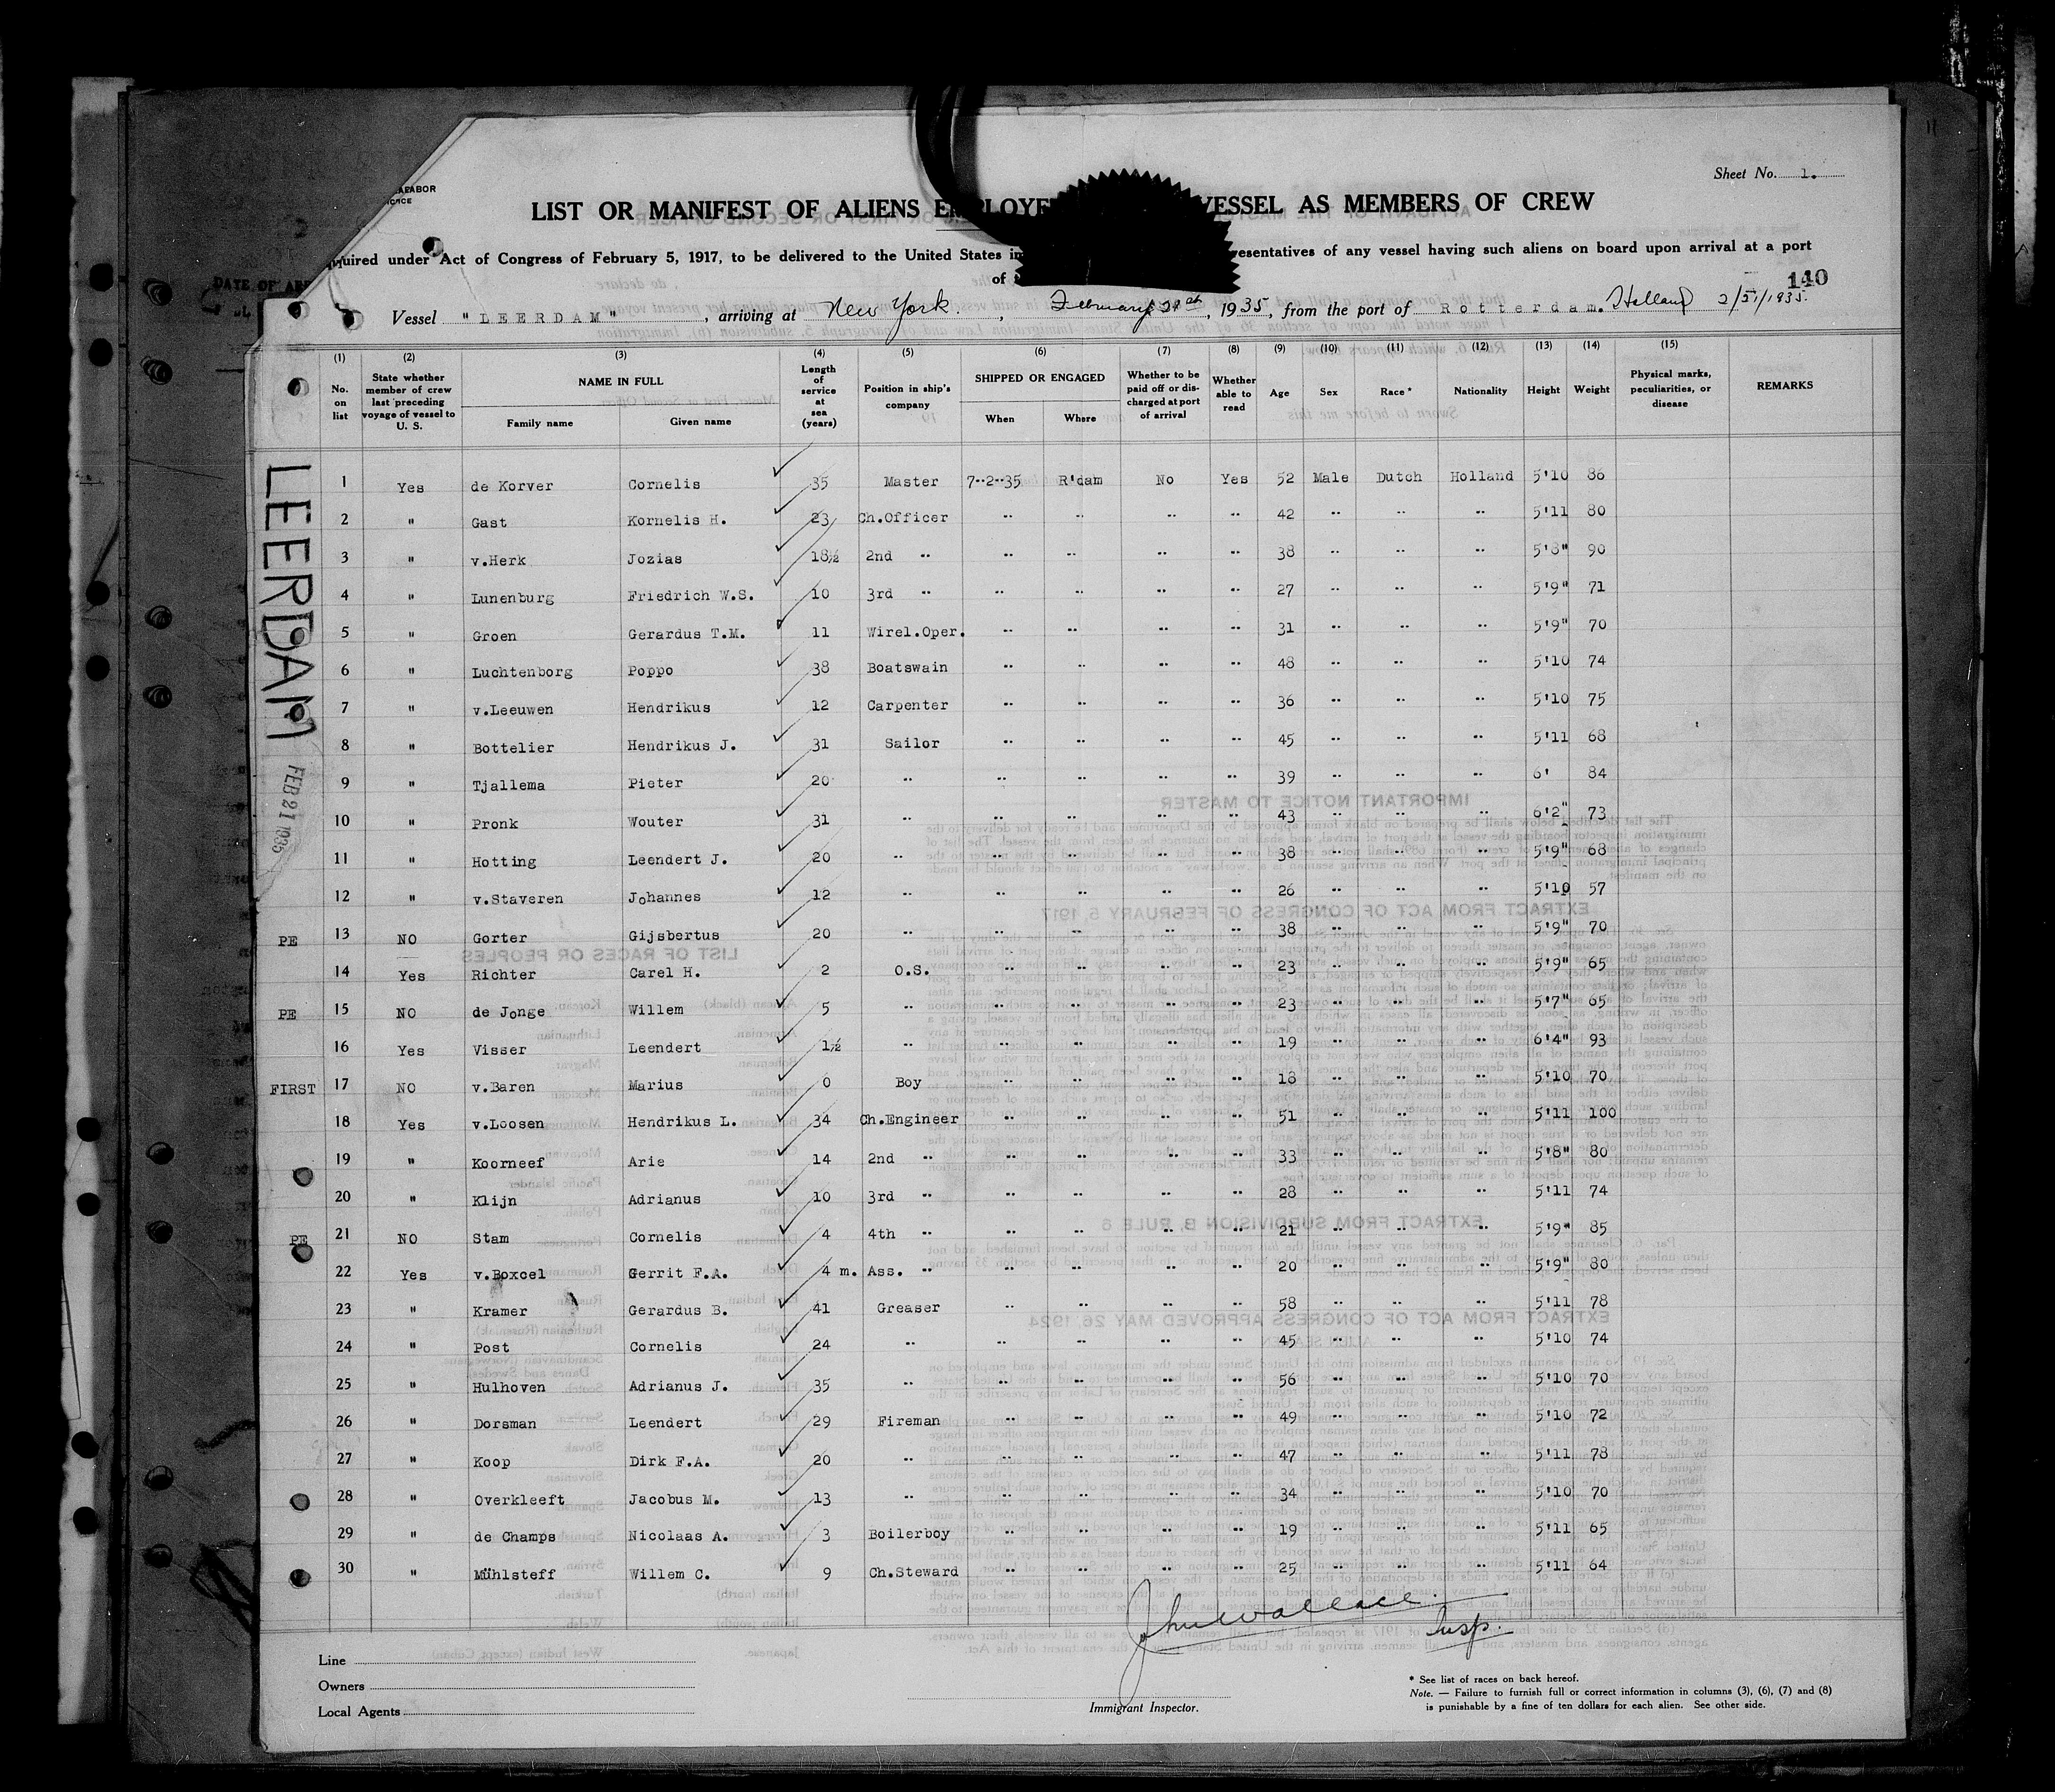 Sheet No. 1.
LIST OR MANIFEST OF ALIENS VESSEL AS MEMBERS OF CREW
Act of Congress of February 5, 1917, to be delivered to the United States of any vessel having such aliens on board upon arrival at a port
of
140
Vessel "LEERDAM", arriving at New York., February 21st, 1935, from the port of Rotterdam. Holland
(1) (2) (3) (4) (5) (6) (7) (8) (9) (10) (11) (12) (13) (14) (15)
No. on list State whether member of crew last preceding voyage of vessel to U. S. NAME IN FULL Family name Given name Length of service at sea (years) Position in ship's company SHIPPED OR ENGAGED When Where Whether to be paid off or discharged at port of arrival Whether able to read Age Sex Race * Nationality Height Weight Physical marks, peculiarities, or disease REMARKS
LEERDAM
FEB 21 1935
1 Yes de Korver Cornelis 35 Master 7-2-35 R'dam No Yes 52 Male Dutch Holland 5'10 86
2 " Gast Kornelis H. 23 Ch.Officer " " " " 42 " " " 5'11 80
3 " v.Herk Jozias 18½ 2nd " " " " " 38 " " " 5'8" 90
4 " Lunenburg Friedrich W.S. 10 3rd " " " " " 27 " " " 5'9" 71
5 " Groen Gerardus T.M. 11 Wirel.Oper. " " " " 31 " " " 5'9" 70
6 " Luchtenborg Poppo 38 Boatswain " " " " 48 " " " 5'10 74
7 " v.Leeuwen Hendrikus 12 Carpenter " " " " 36 " " " 5'10 75
8 " Bottelier Hendrikus J. 31 Sailor " " " " 45 " " " 5'11 68
9 " Tjallema Pieter 20 " " " " " 39 " " " 6' 84
10 " Pronk Wouter 31 " " " " " 43 " " " 6'2" 73
11 " Hotting Leendert J. 20 " " " " " 38 " " " 5'9" 68
12 " v.Staveren Johannes 12 " " " " " 26 " " " 5'10 57
PE 13 NO Gorter Gijsbertus 20 " " " " " 38 " " " 5'9" 70
14 Yes Richter Carel H. 2 O.S. " " " " 23 " " " 5'9" 65
PE 15 NO de Jonge Willem 5 " " " " " 23 " " " 5'7" 65
16 Yes Visser Leendert 1½ " " " " " 19 " " " 6'4" 93
FIRST 17 NO v.Baren Marius 0 Boy " " " " 18 " " " 5'10 70
18 Yes v.Loosen Hendrikus L. 34 Ch.Engineer " " " " 51 " " " 5'11 100
19 " Koorneef Arie 14 2nd " " " " " 33 " " " 5'8" 80
20 " Klijn Adrianus 10 3rd " " " " " 28 " " " 5'11 74
PE 21 NO Stam Cornelis 4 4th " " " " " 21 " " " 5'9" 85
22 Yes v.Boxcel Gerrit F.A. 4 m. Ass. " " " " " 20 " " " 5'9" 80
23 " Kramer Gerardus B. 41 Greaser " " " " 58 " " " 5'11 78
24 " Post Cornelis 24 " " " " " 45 " " " 5'10 74
25 " Hulhoven Adrianus J. 35 " " " " " 56 " " " 5'10 70
26 " Dorsman Leendert 29 Fireman " " " " 49 " " " 5'10 72
27 " Koop Dirk F.A. 20 " " " " " 47 " " " 5'11 78
28 " Overkleeft Jacobus M. 13 " " " " " 34 " " " 5'10 70
29 " de Champs Nicolaas A. 3 Boilerboy " " " " 19 " " " 5'11 65
30 " Mühlsteff Willem C. 9 Ch.Steward " " " " 25 " " " 5'11 64
John Wallace
Insp.
Line
Owners
Local Agents
Immigrant Inspector.
* See list of races on back hereof.
Note. — Failure to furnish full or correct information in columns (3), (6), (7) and (8)
is punishable by a fine of ten dollars for each alien. See other side.